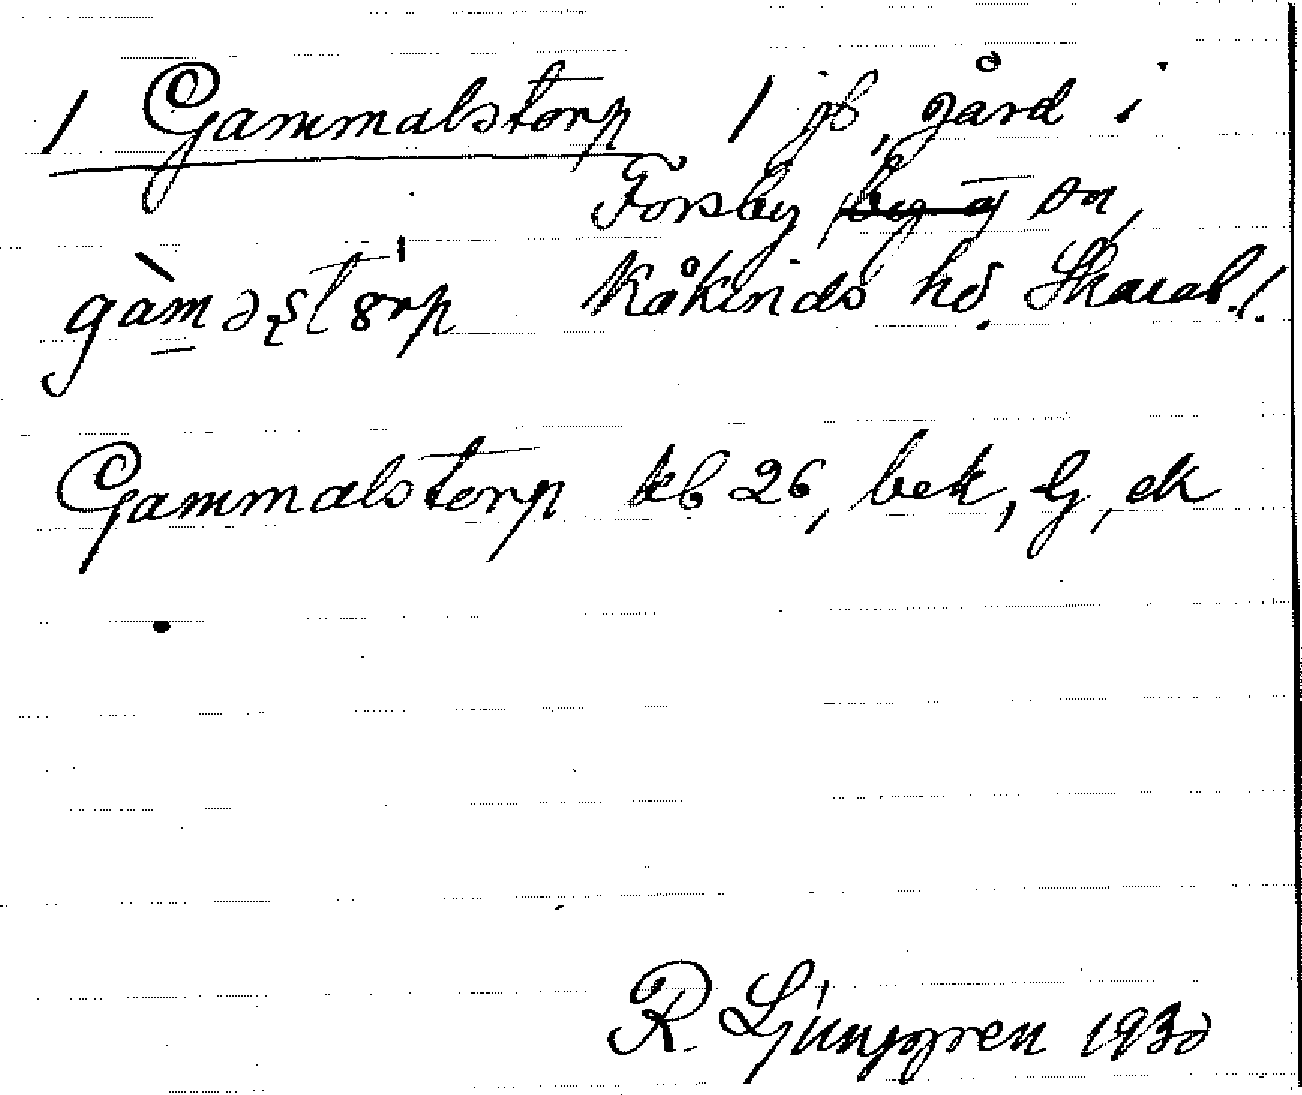 1 Gammalstorp 1 jb, gård i
Forsby sn,
Kåkinds hd. Skarab. l.
Gammalstorp kb 26, bek, G, ek
R. Ljunggren 1930